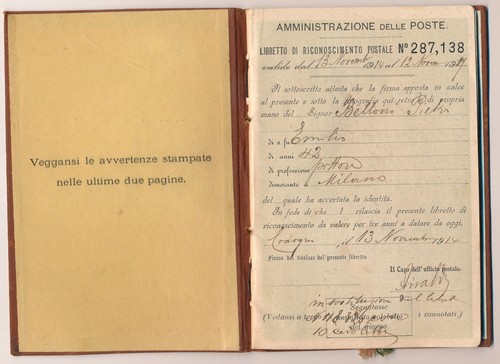 Veggansi le avvertenze stampate
nelle ultime due pagine.
AMMINISTRAZIONE DELLE POSTE.
LIBRETTO DI RICONOSCIMENTO POSTALE Nº 287,138
valido dal 13 Novembre 1914 al 12 Novem 1917
Il sottoscritto attesta che la firma apposta in calce
al presente e sotto la fotografia qui retro è di propria
mano del Signor Belloni
di o fu Emilio
di anni 42
di professione pittore
dimorante a Milano
del quale ha accertata la identità.
In fede di che rilascia il presente libretto di
riconoscimento da valere per tre anni a datare da oggi.
Codogno il 13 Novembre 1914
Firma del titolare del presente libretto
Il Capo dell'ufficio postale.
in sostituzione
Segnatasse
(Vedansi a tergo connotati.)
10